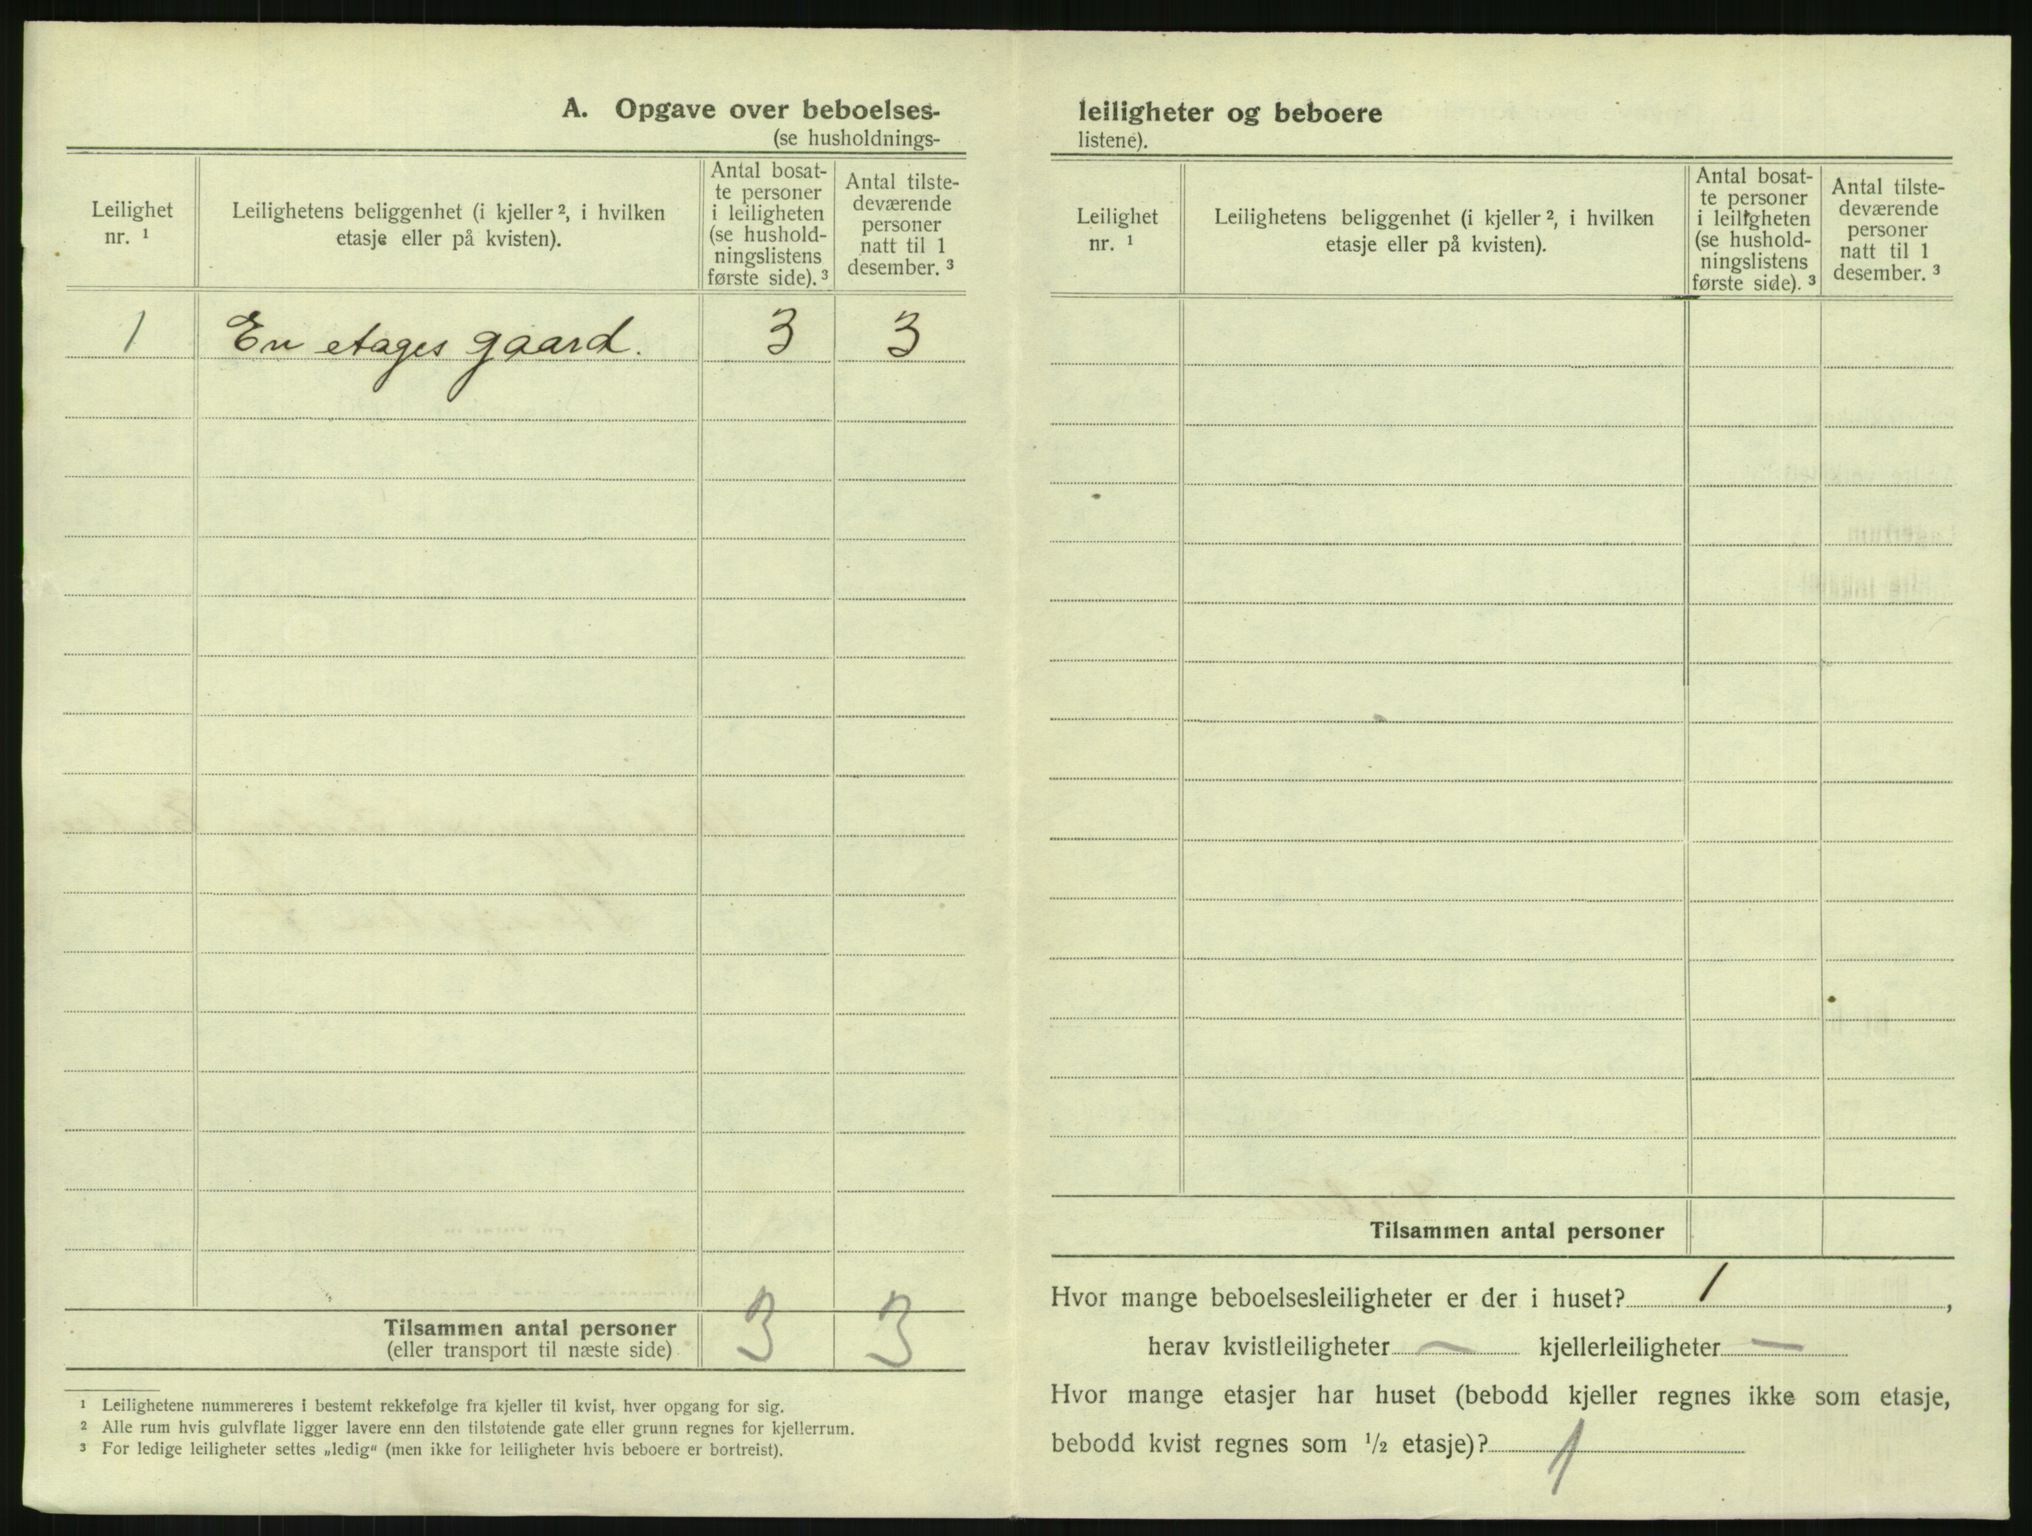 A. Opgave over beboelses-
(se husholdnings-
Leilighet
nr. ¹
Leilighetens beliggenhet (i kjeller ², i hvilken
etasje eller på kvisten).
Antal bosat-
te personer
i leiligheten
(se hushold-
ningslistens
første side). ³
Antal tilste-
deværende
personer
natt til 1
desember. ³
1 En etages gaard. 3 3
Tilsammen antal personer 3 3
(eller transport til næste side)
¹ Leilighetene nummereres i bestemt rekkefølge fra kjeller til kvist, hver opgang for sig.
² Alle rum hvis gulvflate ligger lavere enn den tilstøtende gate eller grunn regnes for kjellerrum.
³ For ledige leiligheter settes „ledig“ (men ikke for leiligheter hvis beboere er bortreist).
leiligheter og beboere
listene).
Leilighet
nr. ¹
Leilighetens beliggenhet (i kjeller ², i hvilken
etasje eller på kvisten).
Antal bosat-
te personer
i leiligheten
(se hushold-
ningslistens
første side). ³
Antal tilste-
deværende
personer
natt til 1
desember. ³
Tilsammen antal personer
Hvor mange beboelsesleiligheter er der i huset? 1,
herav kvistleiligheter — kjellerleiligheter —
Hvor mange etasjer har huset (bebodd kjeller regnes ikke som etasje,
bebodd kvist regnes som ½ etasje)? 1